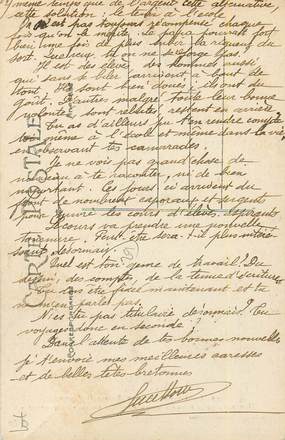 même temps que de l'argent cette alternative
cette solution : te tenir à l'école
n'est pas toujours récompensé chaque
fois qu'on le mérite. Le papa pourrait fort
bien une fois de plus subir la rigueur du
sort.
Il est des des hommes aussi
qui sans se biler arrivent à bout de
tout. Ils sont bien doués ; ils ont du
goût. D'autres malgré toute leur bonne
volonté sont restent en arrière.
Tu as d'ailleurs pu t'en rendre compte
toi même à l'école et même dans la vie,
en observant tes camarades.
Je ne vois pas grand'chose de
nouveau à te raconter, ni de bien
important. Ces jours ci arrivent du
front de nombreux caporaux et sergents
pour suivre les cours d'élèves aspirants
Le cours va prendre une nouvelle
tournure. Peut être sera-t-il plus intéres
sant désormais.
Quel est ton genre de travail ? Du
dessin, des comptes, de la tenue d'écritures
Tu dois être fixée maintenant et tu
ne m'en parles pas.
N'es tu pas titulaire désormais ? Tu
voyages donc en seconde ?
Dans l'attente de tes bonnes nouvelles
je t'envoie mes meilleures caresses
et de belles têtes bretonnes
CARTE POSTALE